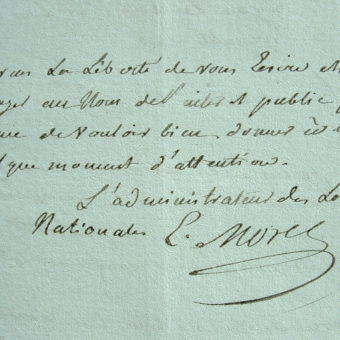 La Liberté de vous Ecrire et
au Nom de l'interet public
de vouloir bien donner
que moment d'attention.
L'administrateur des Lo
Nationales L. Morel